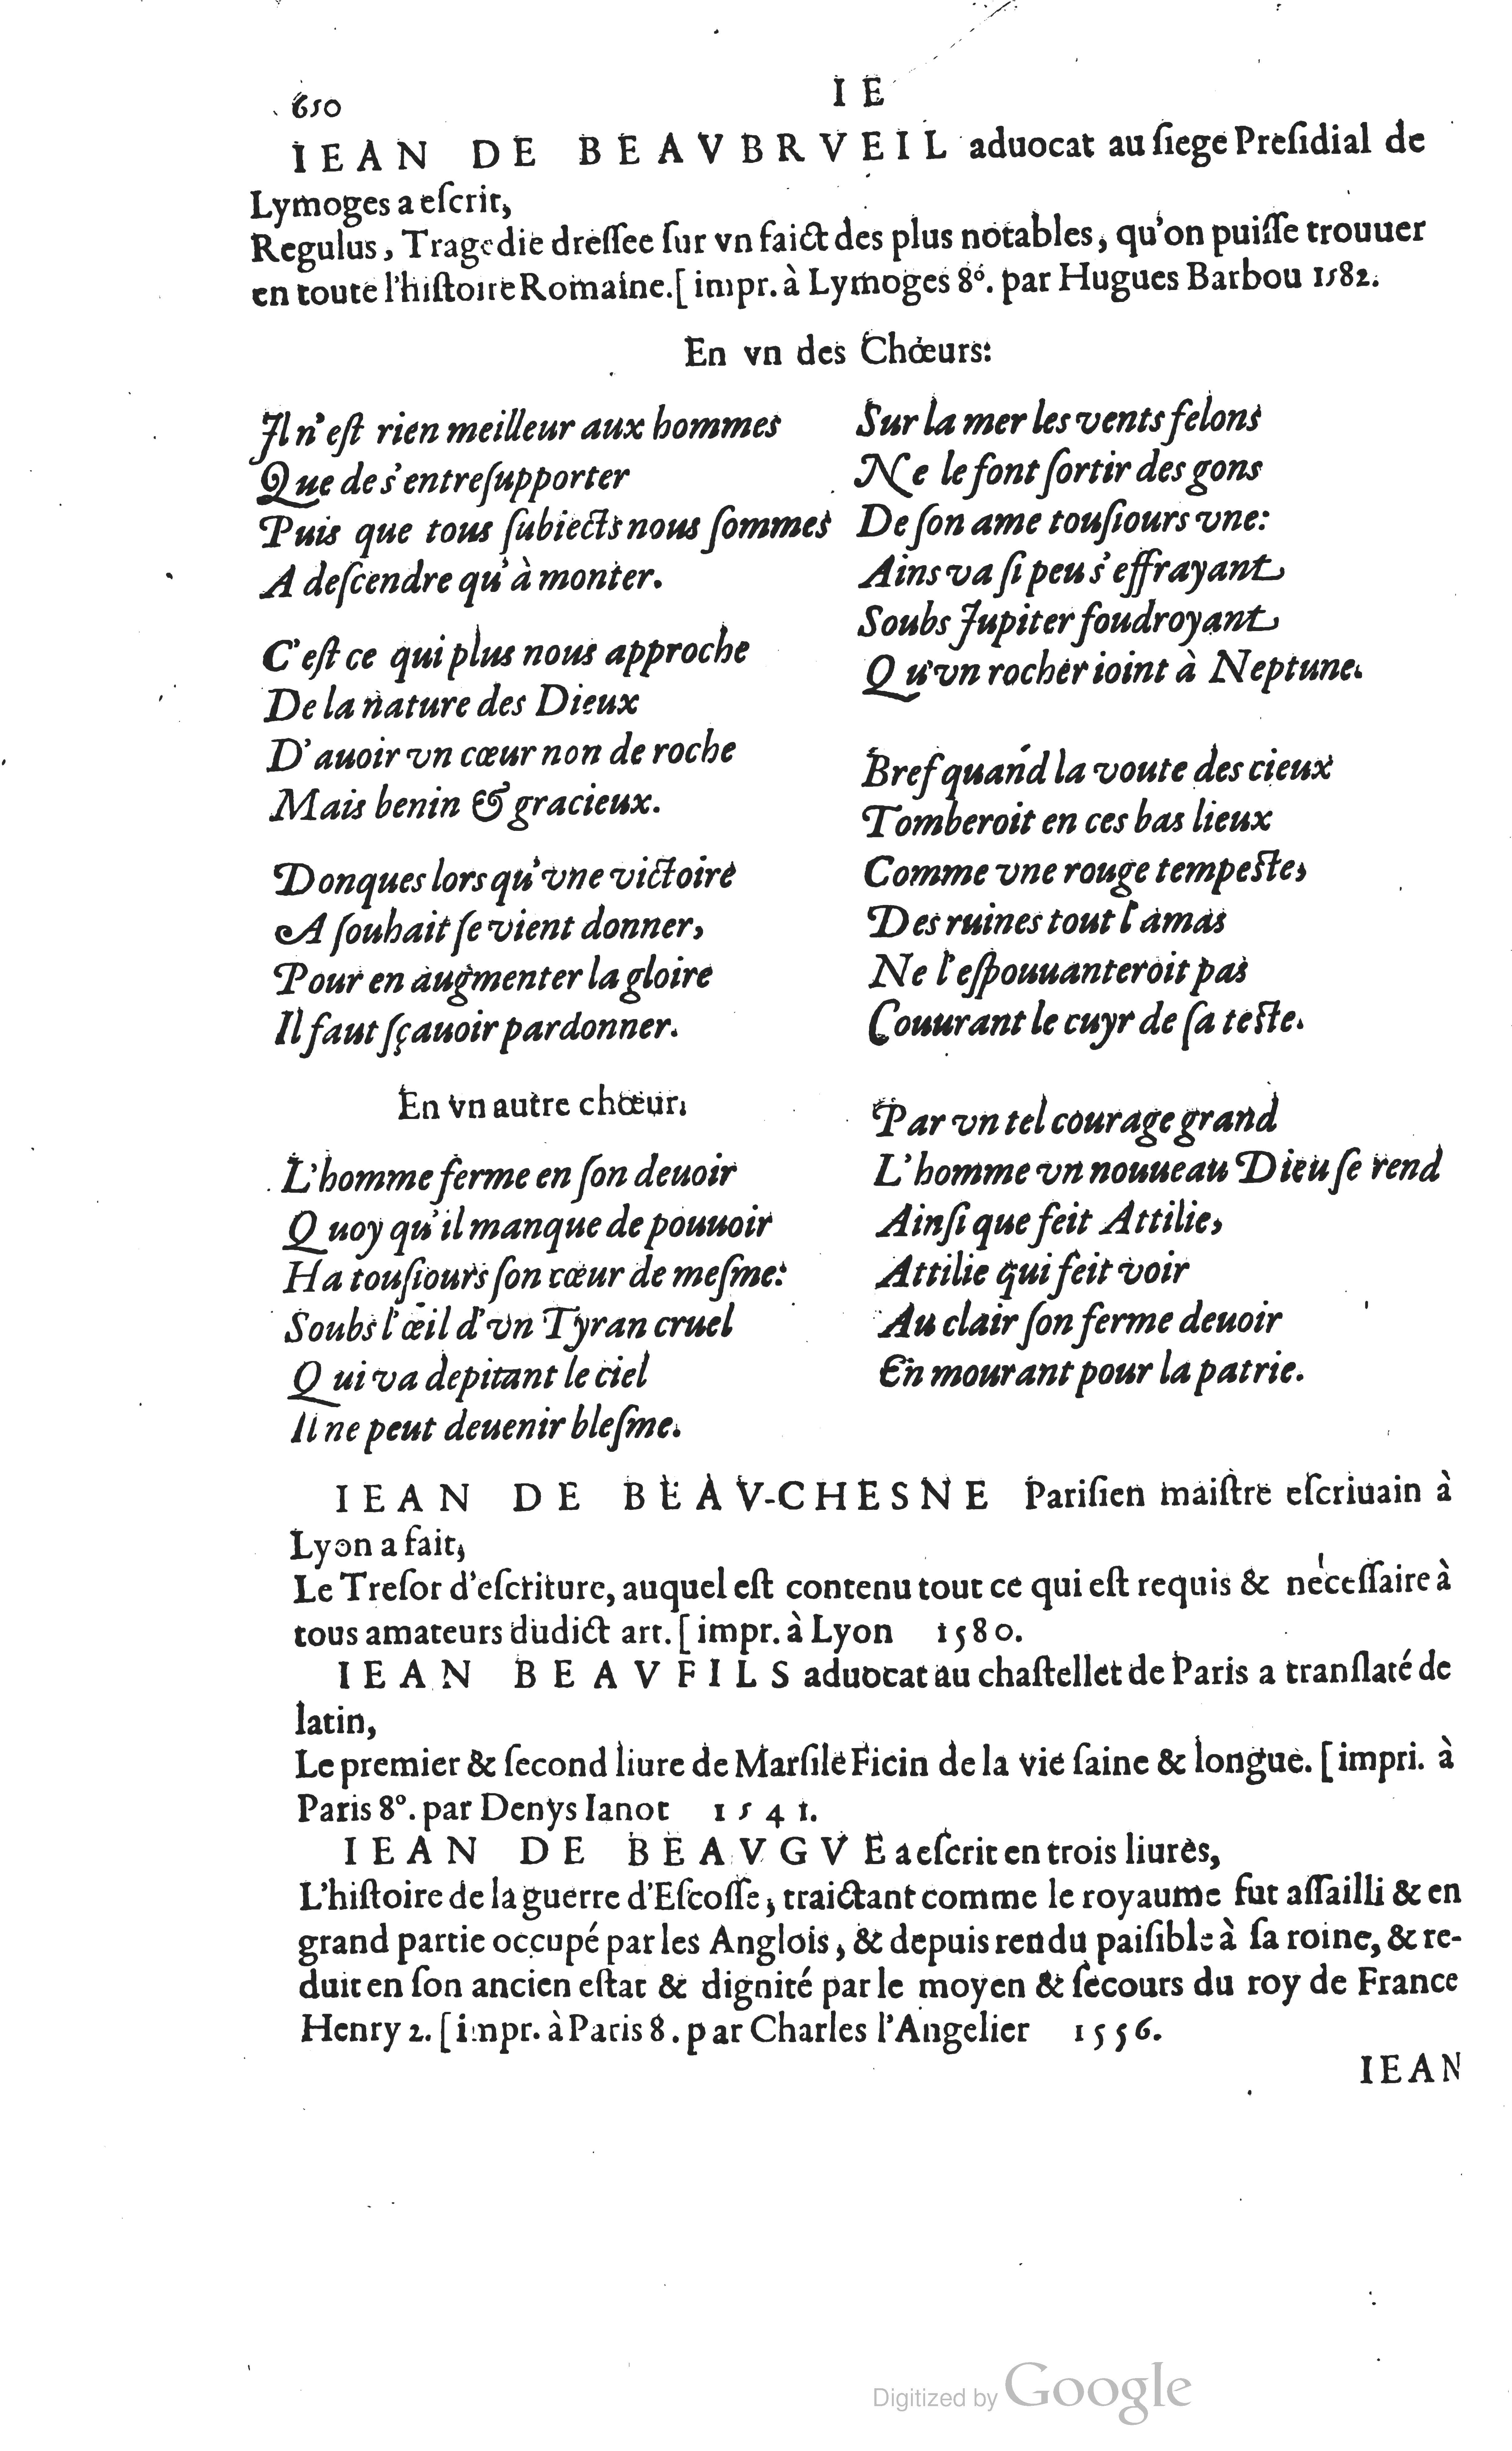 650
I E
IEAN DE BEAVBRVEIL aduocat au ſiege Preſidial de
Lymoges a eſcrit,
Regulus, Tragedie dreſſee ſur vn faict des plus notables, qu'on puiſſe trouuer
en toute l'hiſtoire Romaine. [impr. à Lymoges 8º. par Hugues Barbou 1582.
En vn des Chœurs:
Il n'eſt rien meilleur aux hommes
Que de s'entreſupporter
Puis que tous ſubiects nous ſommes
A deſcendre qu'à monter.
C'eſt ce qui plus nous approche
De la nature des Dieux
D'auoir vn cœur non de roche
Mais benin & gracieux.
Donques lors qu'vne victoire
A ſouhait ſe vient donner,
Pour en augmenter la gloire
Il faut ſçauoir pardonner.
En vn autre chœur.
L'homme ferme en ſon deuoir
Quoy qu'il manque de pouuoir
Ha touſiours ſon cœur de meſme:
Soubs l'œil d'vn Tyran cruel
Qui va depitant le ciel
Il ne peut deuenir bleſme.
Sur la mer les vents felons
Ne le font ſortir des gons
De ſon ame touſiours vne:
Ains va ſi peu s'effrayant
Soubs Jupiter foudroyant
Qu'vn rocher ioint à Neptune.
Bref quand la voute des cieux
Tomberoit en ces bas lieux
Comme vne rouge tempeſte,
Des ruines tout l'amas
Ne l'eſpouuanteroit pas
Couurant le cuyr de ſa teſte.
Par vn tel courage grand
L'homme vn nouueau Dieu ſe rend
Ainſi que feit Attilie,
Attilie qui feit voir
Au clair ſon ferme deuoir
En mourant pour la patrie.
IEAN DE BEAV-CHESNE Pariſien maiſtre eſcriuain à
Lyon a fait,
Le Treſor d'eſcriture, auquel eſt contenu tout ce qui eſt requis & neceſſaire à
tous amateurs dudict art. [impr. à Lyon 1580.
IEAN BEAVFILS aduocat au chaſtellet de Paris a tranſlaté de
latin,
Le premier & ſecond liure de Marſile Ficin de la vie ſaine & longue. [impri. à
Paris 8º. par Denys Ianot 1541.
IEAN DE BEAVGVE a eſcrit en trois liures,
L'hiſtoire de la guerre d'Eſcoſſe, traictant comme le royaume fut aſſailli & en
grand partie occupé par les Anglois, & depuis rendu paiſible à ſa roine, & re-
duit en ſon ancien eſtat & dignité par le moyen & ſecours du roy de France
Henry 2. [impr. à Paris 8. par Charles l'Angelier 1556.
IEAN
Digitized by Google